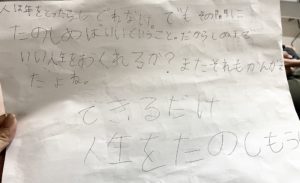 人は年をとったらしかぬれない。でもその前に
たのしめばいいということ。だからしぬまで
いい人生をおくれるか?またそれもかんがえ
たよね。
できるだけ
人生をたのしもう